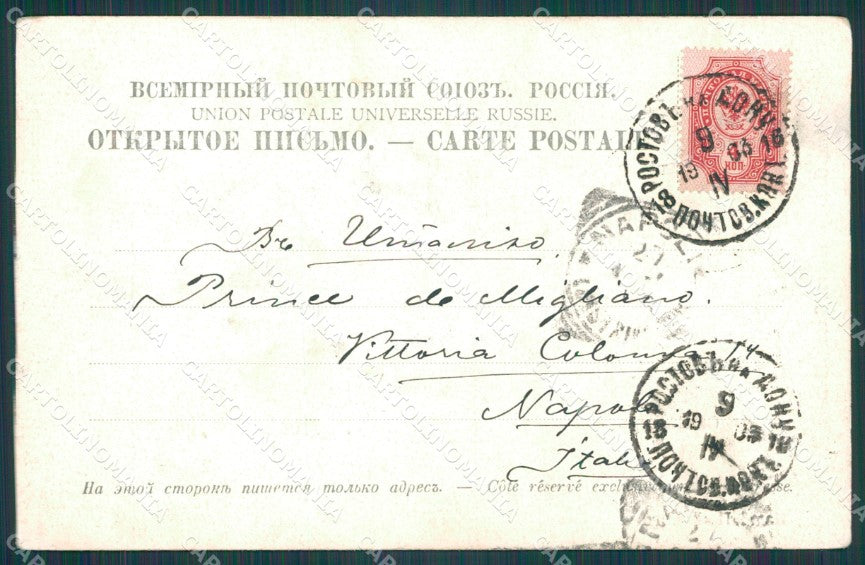 ВСЕМІРНЫЙ ПОЧТОВЫЙ СОЮЗЪ. РОССІЯ.
UNION POSTALE UNIVERSELLE RUSSIE.
ОТКРЫТОЕ ПИСЬМО. — CARTE POSTALE
КОП.
РОСТОВЪ н. ДОНУ
9
19 03 16
IV
18 ПОЧТОВ. КОНТ.
Въ Италію
Prince de Migliano.
Vittoria Colonna 14
Napoli
Italie
РОСТОВЪ н. ДОНУ
9
19 03
IV
18 ПОЧТОВ. КОНТ.
На этой сторонѣ пишется только адресъ. — Côté réservé
CARTOLINOMANIA